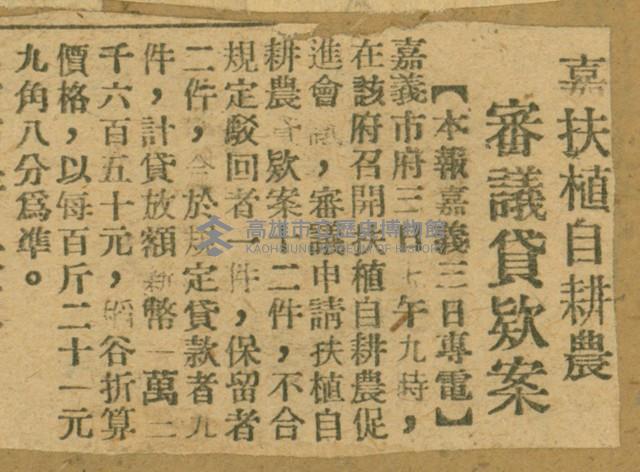 嘉扶植自耕農
審議貸欵案
【本報嘉義三日專電】
嘉義市府三上午九時，
在該府召開扶植自耕農促
進會，審申請扶植自
耕農欵案二件，不合
規定駁回者件，保留者
二件，於規定貸款者九
件，計貸放額新幣一萬二
千六百五十元，稻谷折算
價格，以每百斤二十一元
九角八分爲準。
高雄市立歷史博物館
KAOHSIUNG MUSEUM OF HISTORY